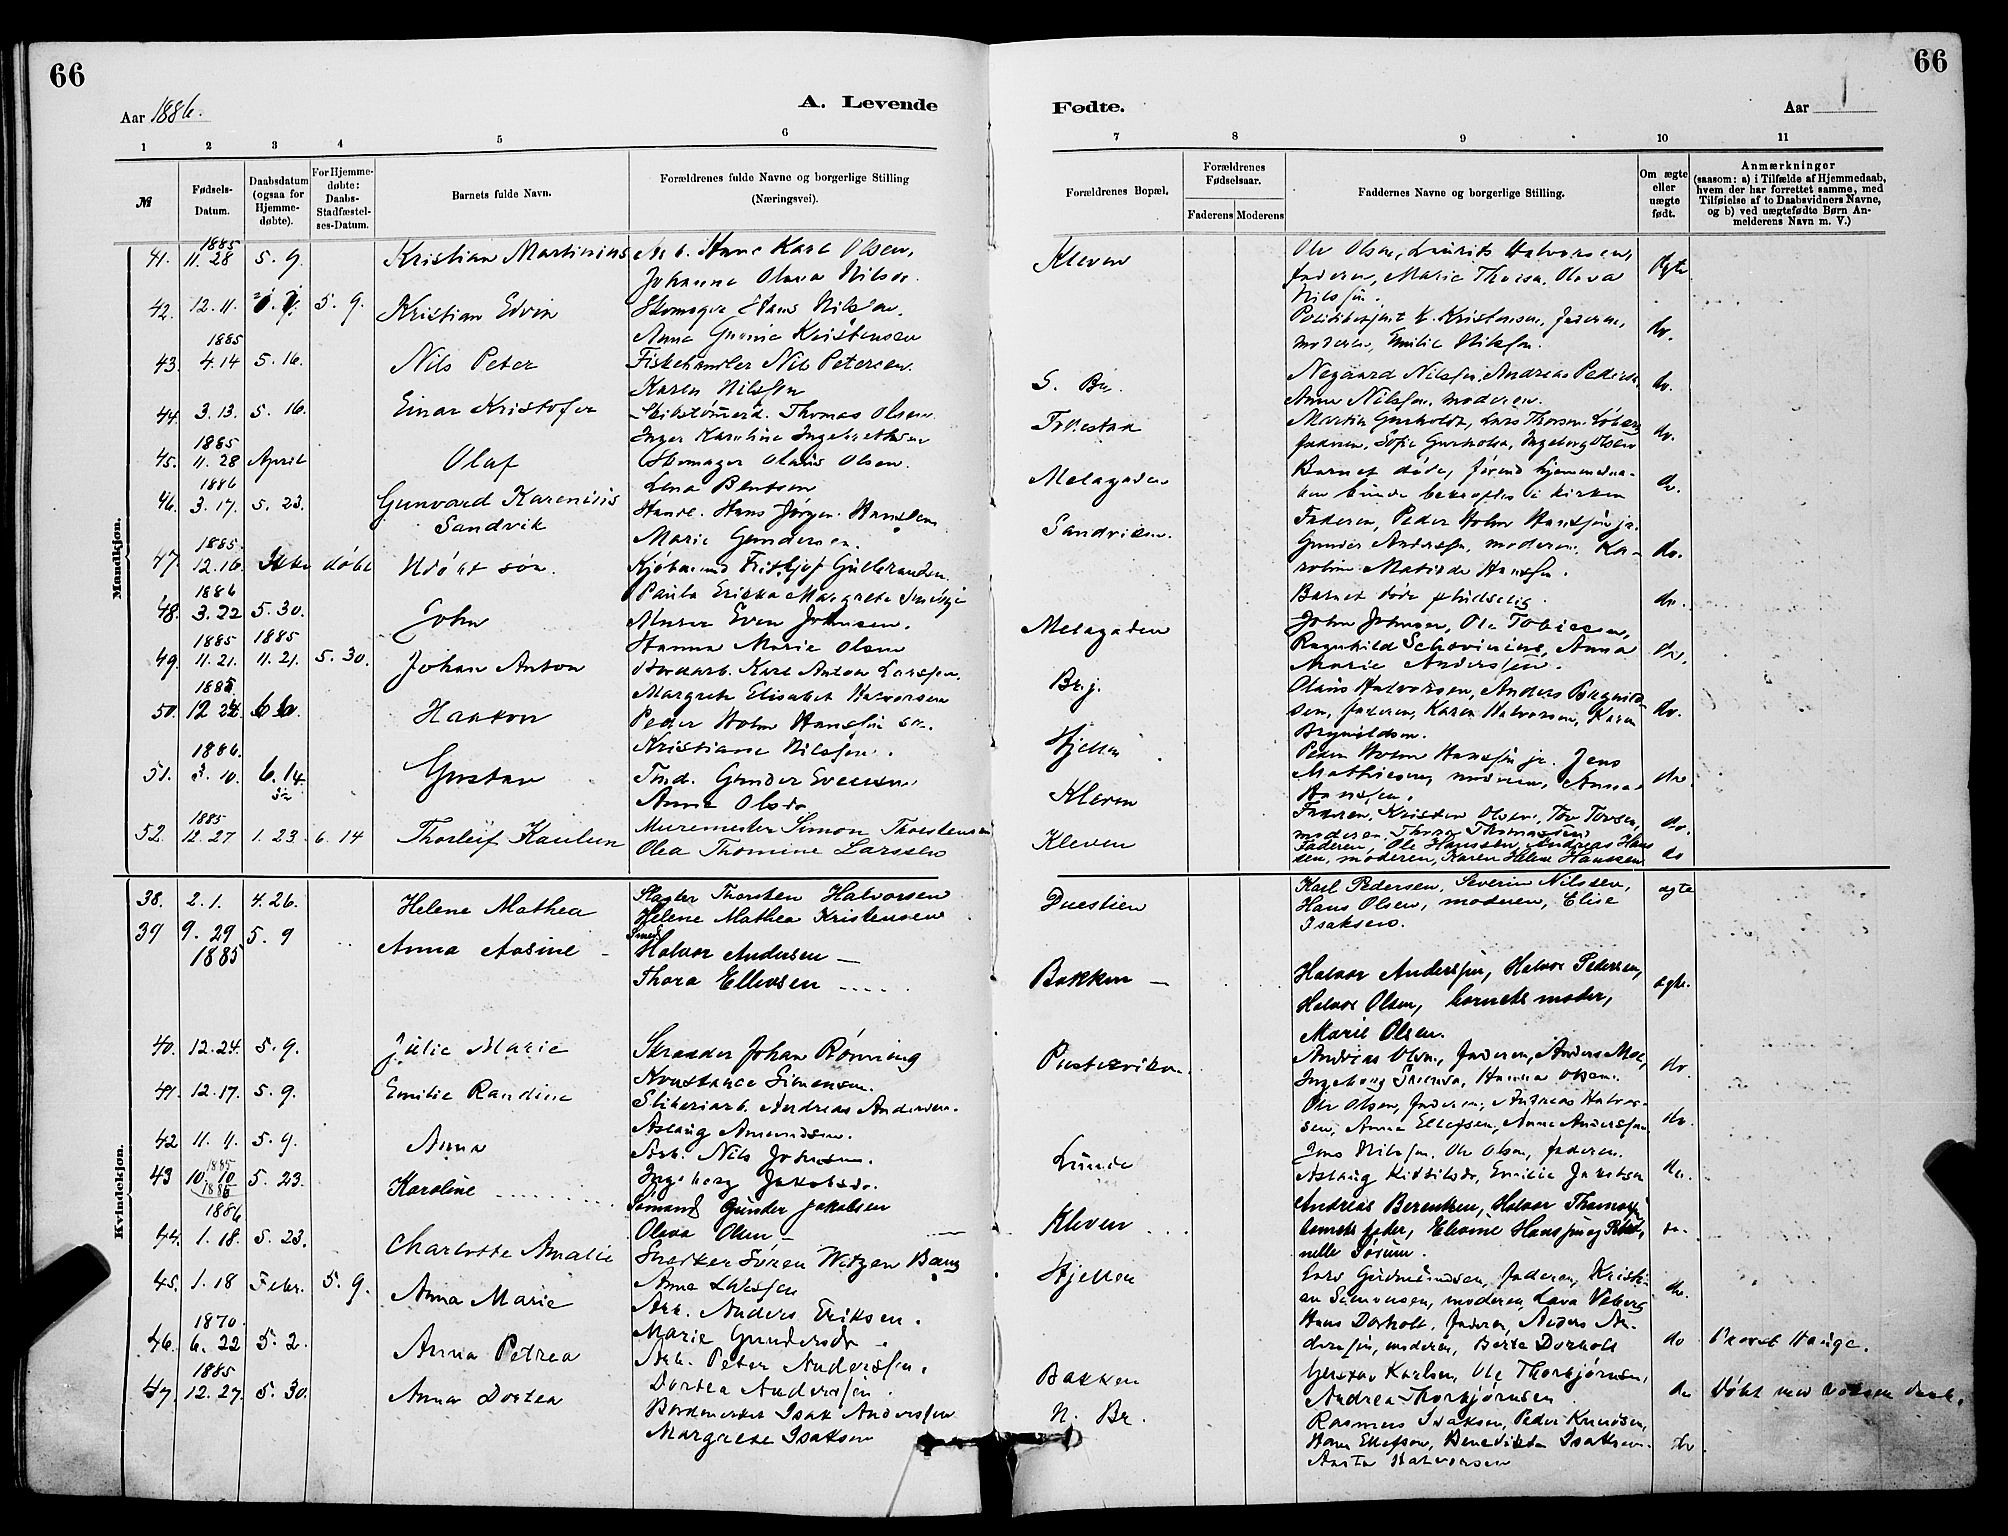 66
66
Aar 1886.
A. Levende
Fødte.
Aar
1 2 3 4 5 6 7 8 9 10 11
№
Fødsels-Datum.
Daabsdatum (ogsaa for Hjemme-døbte).
For Hjemme-døbte: Daabs-Stadfæstel-ses-Datum.
Barnets fulde Navn.
Forældrenes fulde Navne og borgerlige Stilling (Næringsvei).
Forældrenes Bopæl.
Forældrenes Fødselsaar.
Faderens Moderens
Faddernes Navne og borgerlige Stilling.
Om ægte eller uægte født.
Anmærkninger
(saasom: a) i Tilfælde af Hjemmedaab,
hvem der har forrettet samme, med
Tilføielse af to Daabsvidners Navne,
og b) ved uægtefødte Børn An-
melderens Navn m. V.)
Mandkjøn.
41. 1885 11. 28 5. 9. Kristian Martinius Arb. Hans Karl Olsen, Kleven Ole Olsen, Laurits Halvorsen, ægte
Johanne Olava Nilsdr. faderen, Marie Olava
Nilssen.
42. 12. 11. 5. 9. Kristian Edvin Skomager Hans Nilssen, Politibetjent Kristensen, faderen, do.
Anne Kristensen moderen, Emilie Nilssen.
43. 1885 4. 14 5. 16. Nils Peter Fiskehandler Nils Petersen. S. Br. Nilssen, Andreas Pedersen do.
Karen Nilssen Anne Nilssen, moderen.
44. 3. 13. 5. 16. Einar Kristofer Thomas Olsen. Martin Gunholdt, Lars Thorsen do.
Inger Karoline Ingebretsen faderen, Sofie Ingeborg Olsen
45. 1885 11. 28 April Olaf Skomager Olaus Olsen. Melagaden Barnet døde, førend hjemmedaa-
Lena Bentsen ben kunde bekræftes i kirken do.
46. 1886 3. 17. 5. 23. Gunvard Karenius Handl. Hans Jørgen Hanssen Sandviken. Faderen, Peder Holm Hanssen jr.
Sandvik Marie Gundersen. Gunder Anderssen, moderen, Ka- do.
47. 1885. 12. 16. Ikke døbt Udøbt søn. Kjøbmand Fritjof Gulbransen roline Matilde Hanssen.
Paula Ericka Margrete Barnet døde pludselig. do.
48. 1886 3. 22 5. 30. John Murer Even Johnsen. Melagaden John Johnsen, Ole Tobiesen,
Hanna Marie Olsen Ragnhild Anna do.
49. 1885 11. 21. 1885 11. 21. 5. 30. Johan Anton Bordarb. Karl Anton Larssen. Brj. Marie Anderssen.
Margrete Elisabet Halvorsen Olaus Halvorsen, Anders Brynild-
50. 1885 12 24 6 Haakon Peder Holm Hanssen sr. Hjellen sen, faderen, Karen Halvorsen, Karen do.
Kristiane Nilssen. Brynildsen.
51. 1886. 3. 10. 6. 14. Gustav Tind. Gunder Evensen Kleven Peder Holm Hanssen jr. Jens
Anne Olsdr Mathiesen, moderen, Anna do.
Hanssen.
Faderen, Kristen Olsen, Tov Tovsen, do.
moderen, Thora Thomassen
52. 1885 12. 27 1. 23. 6. 14 Thorleif Muremester Simon Thorstensen Kleven Faderen, Ole Hanssen, Andreas Hans
Olea Thomine Larssen sen, moderen, Karen Helene Hanssen do
Kvindekjøn.
38. 2. 1. 4. 26. Helene Mathea Slagter Thorsten Halvorsen Duestien Karl Pedersen, Severin Nilssen, ægte
Helene Mathea Kristensen Hans Olsen, moderen, Elise
Isaksen.
39 9. 29 1885 5. 9 Anna Aasine Smed Halvor Andersen Bakken Halvor Anderssen, Halvor Pedersen, ægte.
Thora Ellevsen Halvor Olsen, barnets moder,
Marie Olsen.
40. 12. 24. 5. 9. Julie Marie Skrædder Johan Rønning Andreas Olsen, faderen, Anders Moe, do.
Konstance Simensen. Ingeborg Hanna Olsen.
41. 12. 17. 5. 9. Emilie Randine Sliberiarb. Andreas Andersen. Ole Olsen, faderen, Andreas Halvor-
Aslaug Amundsen. sen, Anne Ellefsen, Anne Anderssen do.
42 11. 11. 5. 9. Anna Arb. Nils Johnsen. Lunde Jens Nilssen, Ole Olsen, faderen.
Ingeborg Jakobsdr. Aslaug Kittilsdr, Emilie Jakobsen do.
43 1885 10 10 1886 5. 23. Karoline Sømand Gunder Jakobsen Kleven Andreas Berentsen, Halvor Thomassen
Olava Olsen barnets fader, Elevine Hanssen og
nelle
44. 1886 1. 18. 5. 23. Charlotte Amalie Snedker Søren Bang Hjellen Lars Gudmundsen, faderen, Kristi-
Anna an Simonsen, moderen, Lava Viberg do.
45. 1. 18 Febr. 5. 9. Anna Marie Arb. Anders Eriksen. Hans Dorholt, faderen, Anders An-
Marie Gundersdr derssen, moderen, Berte Dorholt do Provst Hauge.
46. 1870. 6. 22 5. 2. Anna Petrea Arb. Peter Anderssen. Bakken Gustav Karlsen, Ole Thorbjørnsen,
Dortea Anderssen. Andrea Thorbjørnsen do Døbt med voksen daab.
47. 1885 12. 27. 5. 30. Anna Dortea Isak Anderssen N. Br. Rasmus Isaksen, Peder Knudsen,
Margrete Isaksen Hans Ellefsen, Benedikte Isaksen do
Halvorsen